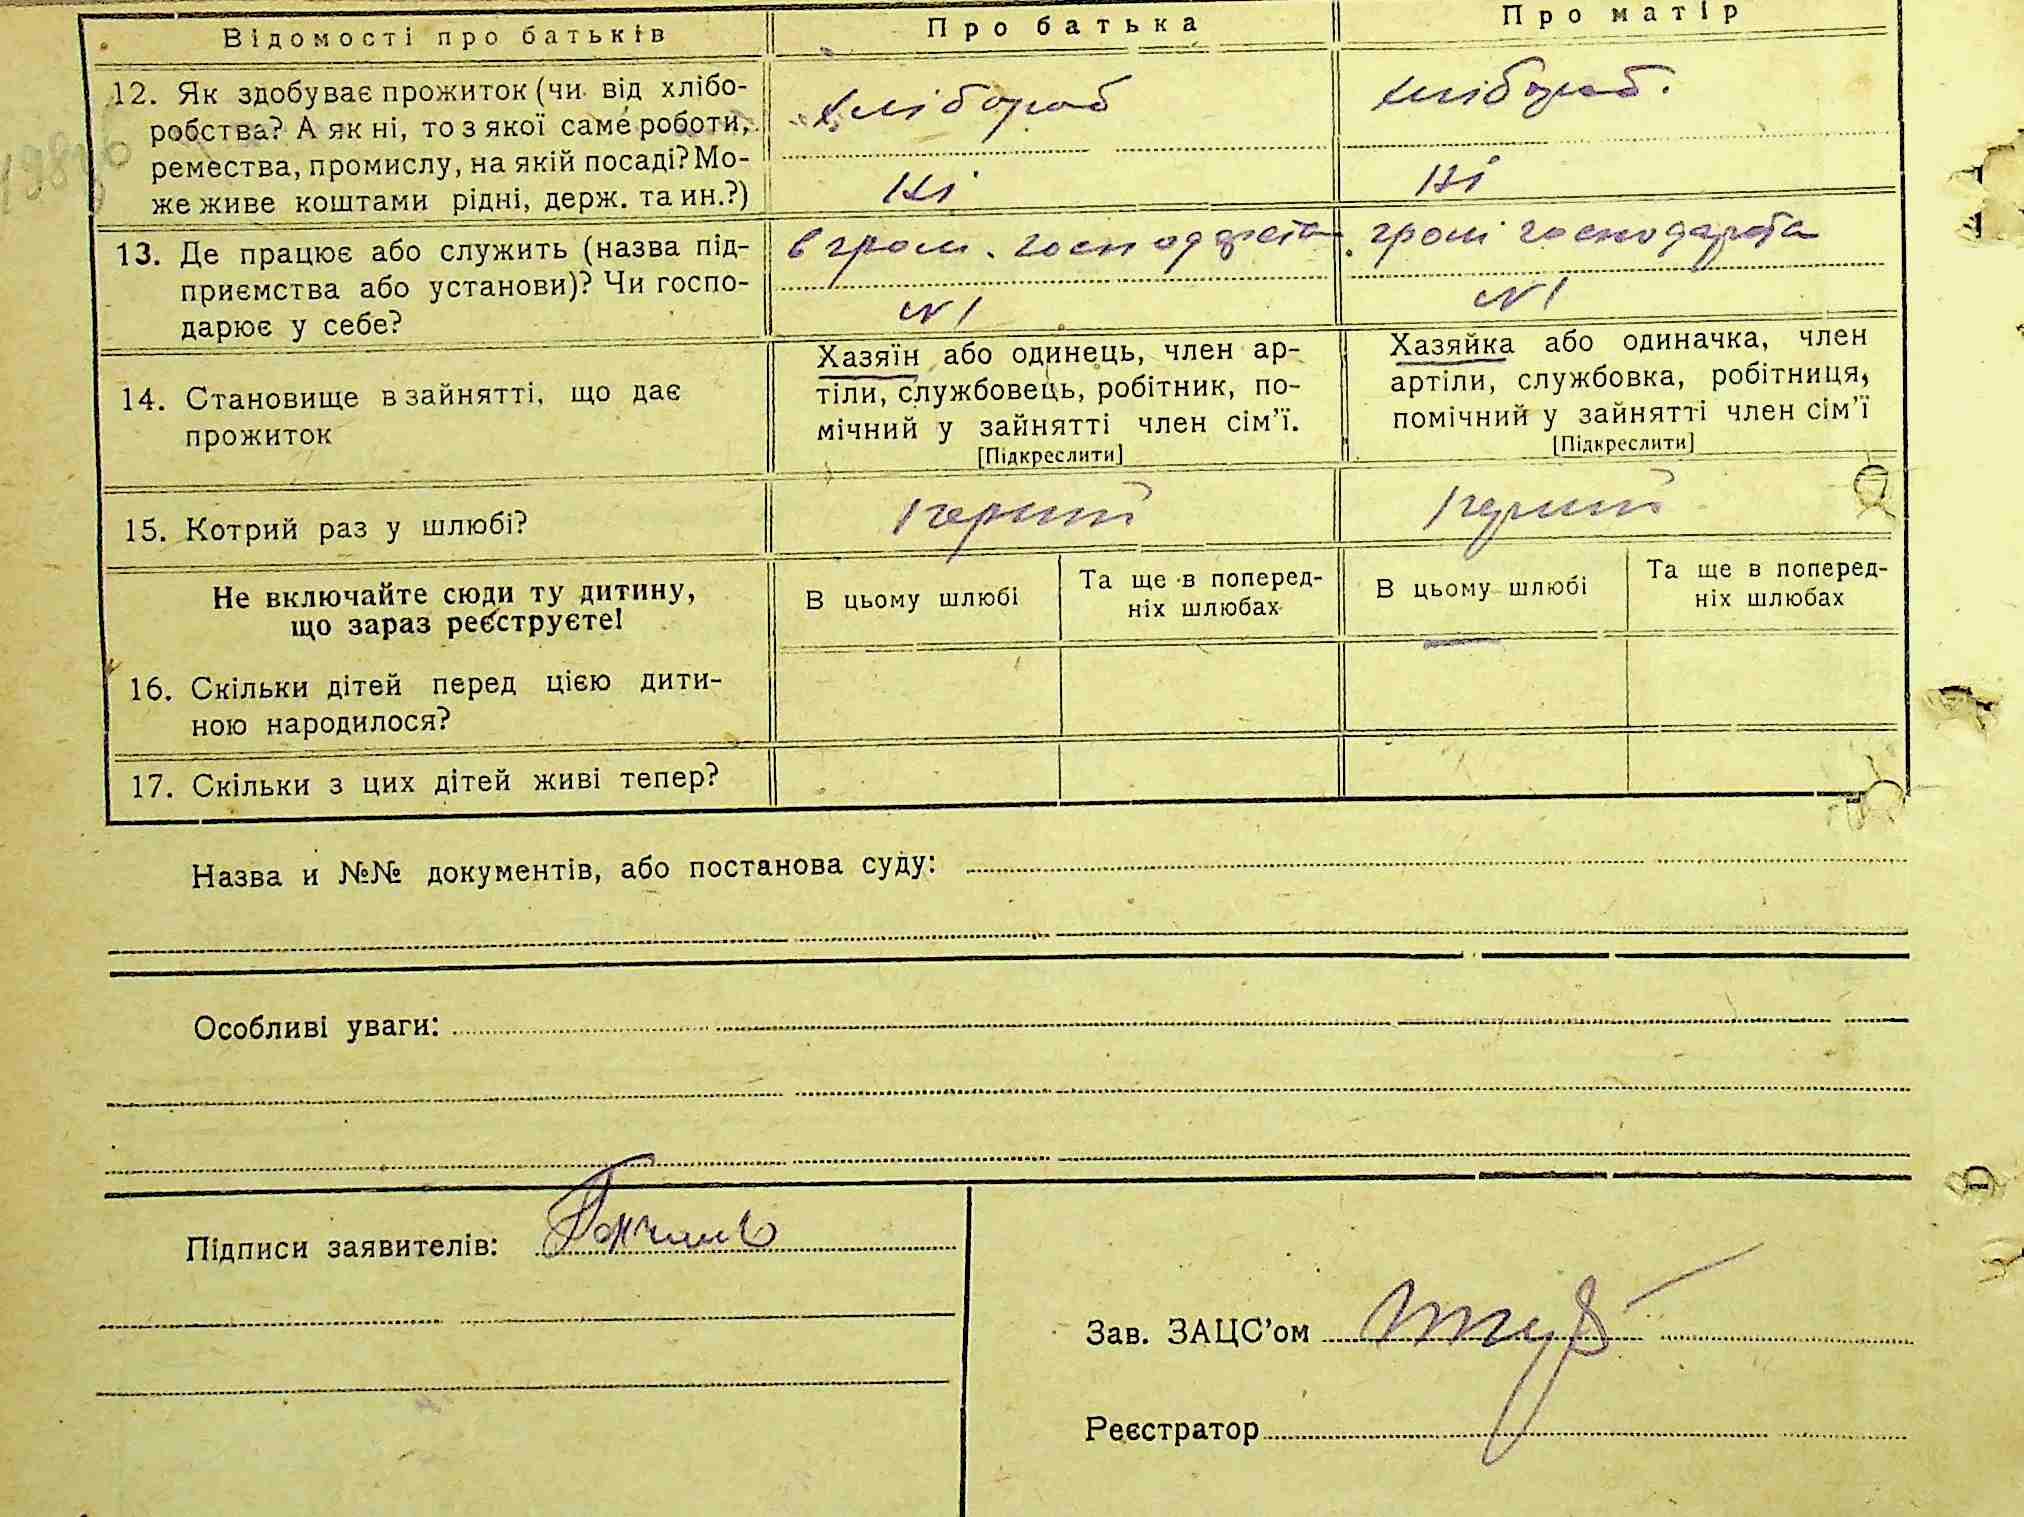 Відомості про батьків
Про батька
Про матір
12. Як здобуває прожиток (чи від хлібо-
робства? А як ні, то з якої саме роботи,
ремества, промислу, на якій посаді? Мо-
же живе коштами рідні, держ. та ин.?)
хлібороб
Ні
хлібороб.
Ні
13. Де працює або служить (назва під-
приємства або установи)? Чи госпо-
дарює у себе?
в гром. господарста
№1
гром господарста
№1
14. Становище в зайнятті, що дає
прожиток
Хазяїн або одинець, член ар-
тіли, службовець, робітник, по-
мічний у зайнятті член сім’ї.
[Підкреслити]
Хазяйка або одиначка, член
артіли, службовка, робітниця,
помічний у зайнятті член сім’ї
[Підкреслити]
15. Котрий раз у шлюбі?
перший
перший
Не включайте сюди ту дитину,
що зараз реєструєте!
В цьому шлюбі
Та ще в поперед-
ніх шлюбах
В цьому шлюбі
Та ще в поперед-
ніх шлюбах
16. Скільки дітей перед цією дити-
ною народилося?
17. Скільки з цих дітей живі тепер?
Назва и №№ документів, або постанова суду:
Особливі уваги:
Підписи заявителів:
Зав. ЗАЦС’ом
Реєстратор